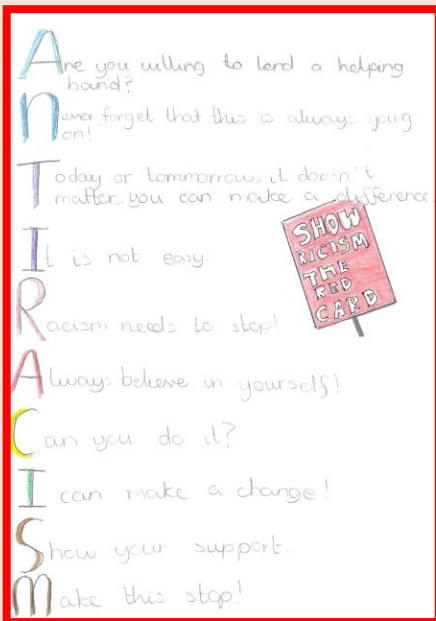 Are you willing to lend a helping
hand?
Never forget that this is always going
on!
Today or tommorrow, it doesn't
matter, you can make a difference.
It is not easy.
SHOW
RICISM
THE
RED
CARD
Racism needs to stop!
Always believe in yourself!
Can you do it?
I can make a change!
Show your support.
Make this stop!